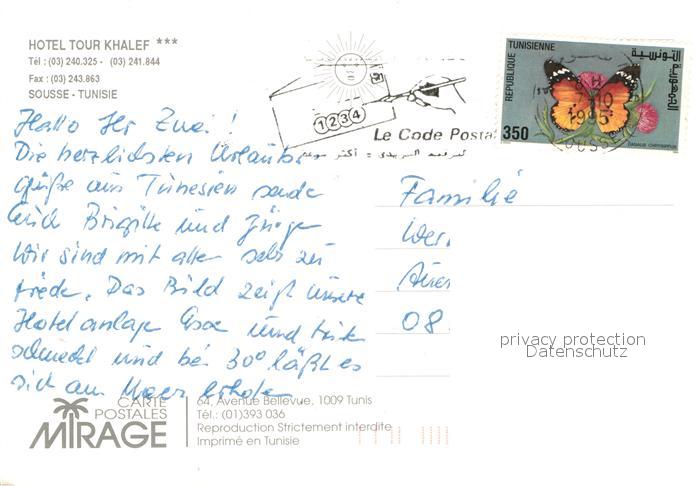 HOTEL TOUR KHALEF ***
Tél : (03) 240.325 - (03) 241.844
Fax : (03) 243.863
SOUSSE - TUNISIE
Hallo Ihr Zwei!
Die herzlichsten Urlaubs
grüße aus Tunesien sende
Euch Brigitte und Jürge
Wir sind mit allem sehr zu
friede. Das Bild zeigt unsere
Hotelanlage Essen und trink
schmeckt und bei 30° läßt es
sich am Meer erhole
CARTE
POSTALES
MIRAGE
64, Avenue Bellevue, 1009 Tunis
Tél.: (01)393 036
Reproduction Strictement interdite
Imprimé en Tunisie
1234
Le Code Postal
الترقيم البريدي = أكثر سرعة
REPUBLIQUE TUNISIENNE
الجمهورية التونسية
350
1995
SOUSSE
Familie
Wer
08
privacy protection
Datenschutz